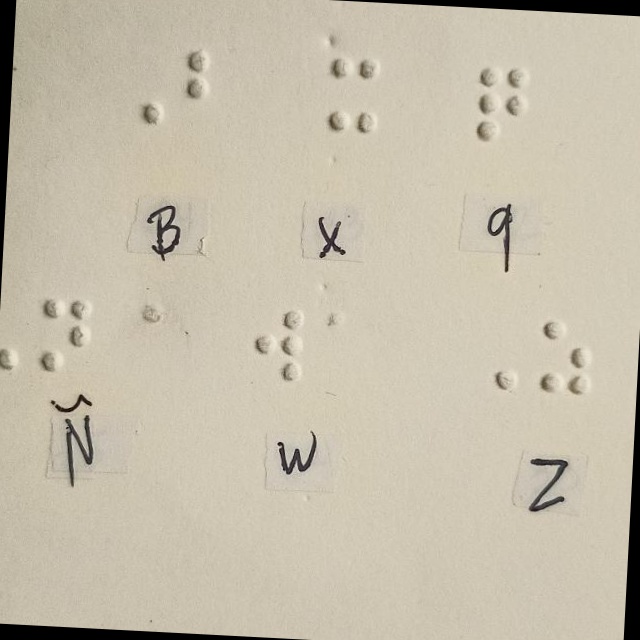 ⠠⠃ ⠭ ⠟
B x q
⠠⠝ ⠺ ⠠⠵
Ň w Z